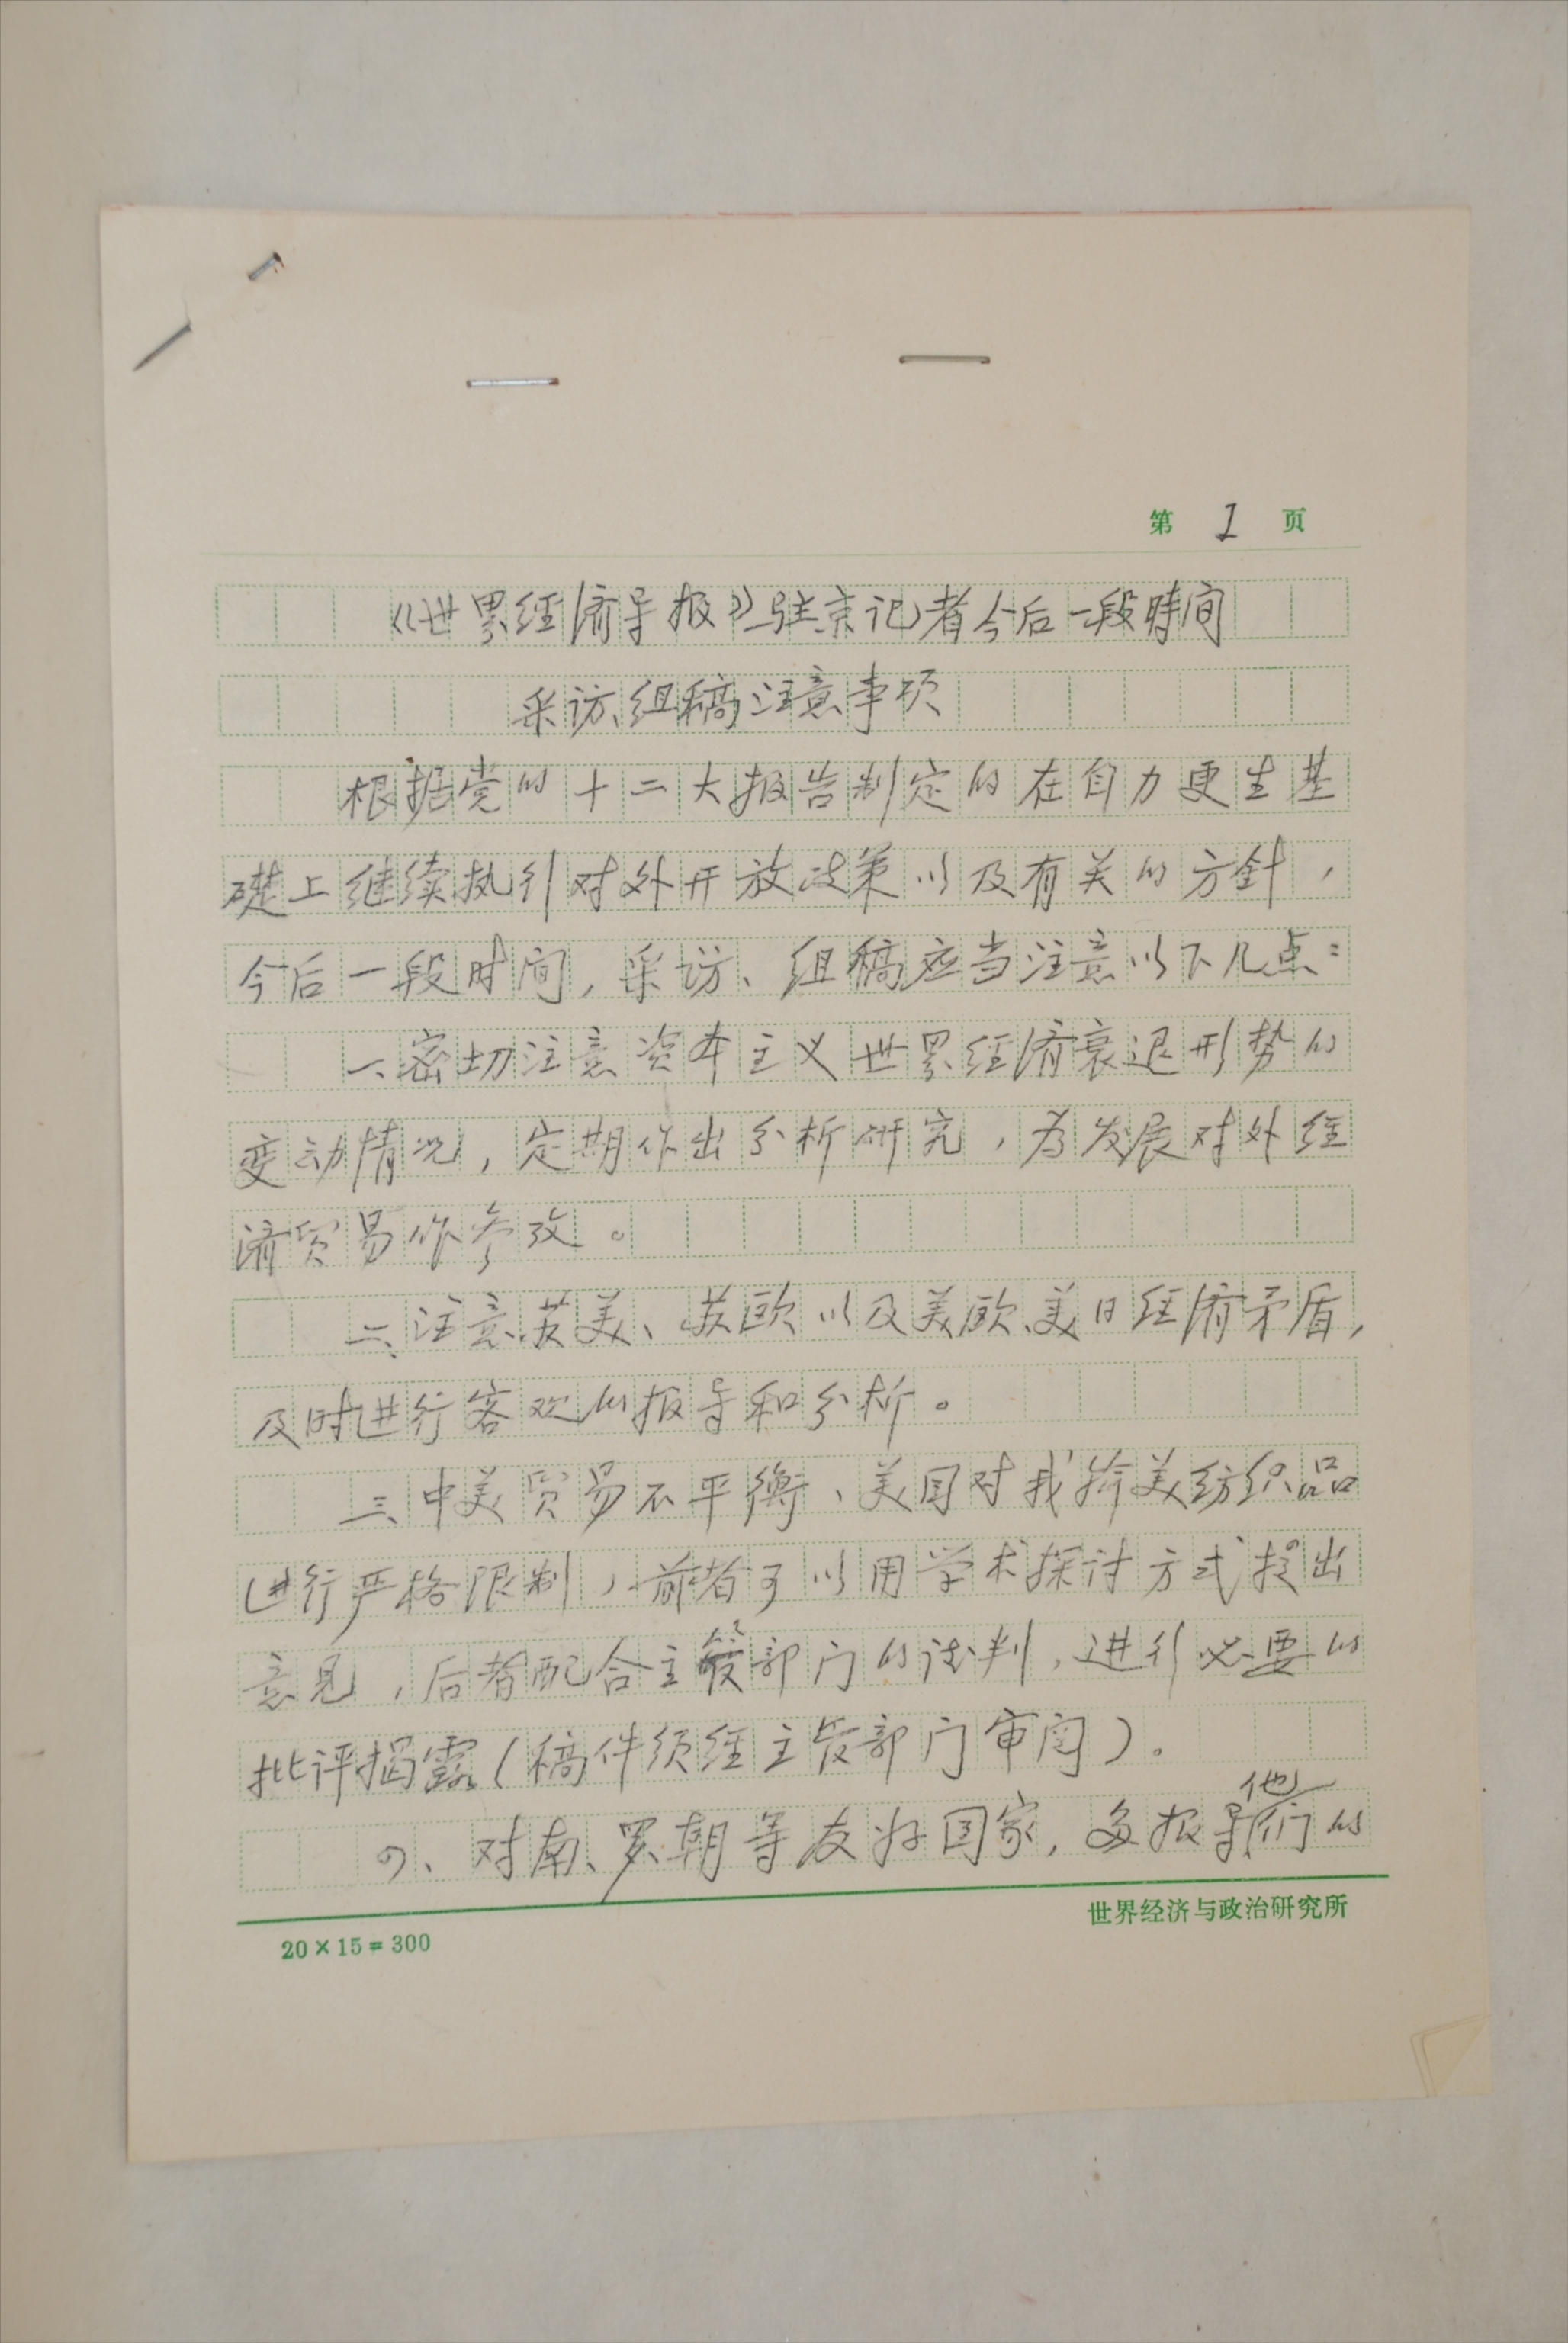 第 1 页
《世界经济导报》驻京记者今后一段时间
采访、组稿注意事项
根据党的十二大报告制定的在自力更生基
础上继续执行对外开放政策以及有关的方针，
今后一段时间，采访、组稿应当注意以下几点：
一、密切注意资本主义世界经济衰退形势的
变动情况，定期作出分析研究，为发展对外经
济贸易作参考。
二、注意苏美、苏欧以及美欧、美日经济矛盾，
及时进行客观的报导和分析。
三、中美贸易不平衡、美国对我输美纺织品
进行严格限制，前者可以用学术探讨方式提出
意见，后者配合主管部门的谈判，进行必要的
批评揭露（稿件须经主管部门审阅）。
四、对南、罗、朝等友好国家，多报导他们的
世界经济与政治研究所
20×15=300